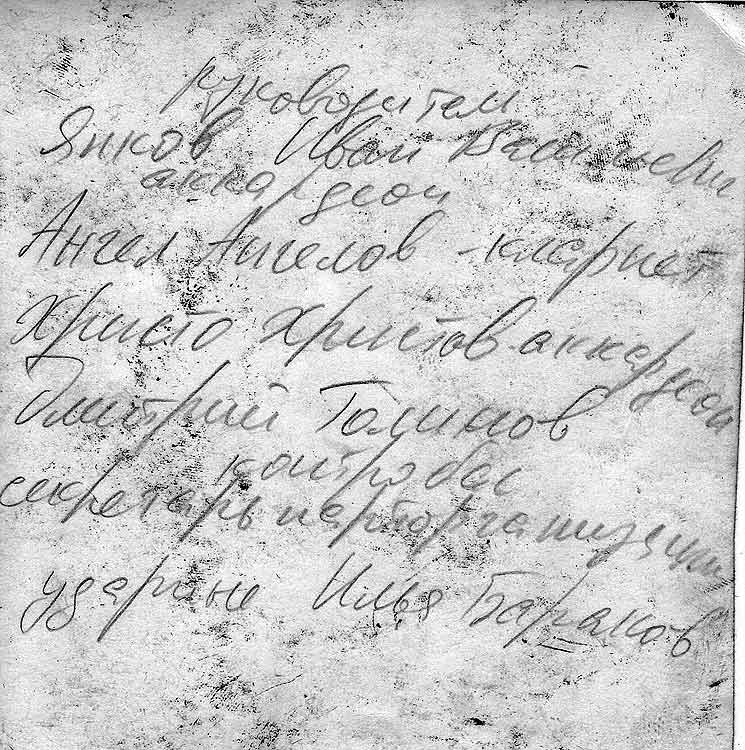 руководители
Янков Иван Васильеви
аккордеон
Ангел Ангелов - кларнет
Христо Христов - аккордеон
Дмитрий Галинов
контробас
секретарь парторганизации
ударные Илья Бараков